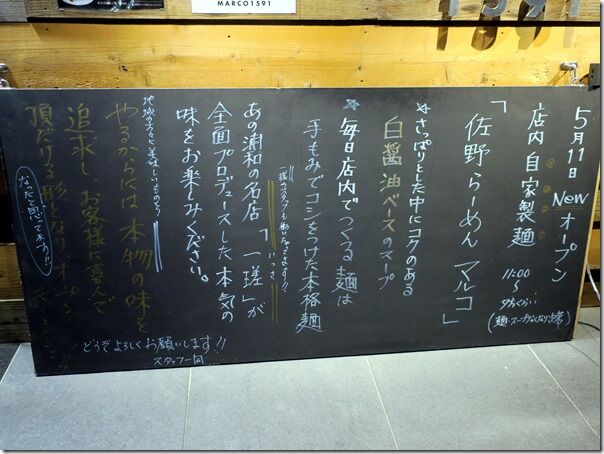 MARCO1591
5月11日 New オープン
店内自家製麺
11:00
〜
夕方くらい
(麺・スープなくなり次第)
「佐野らーめん マルコ」
☆さっぱりとした中にコクのある
白醤油ベースのスープ
☆毎日店内でつくる麺は
手もみでコシをつけた本格麺
あの浦和の名店「一瑳」が
いっさ
全面プロデュースした本気の
味をお楽しみください。
地域の方々に美味しいものを!
やるからには本物の味を
追求し、お客様に喜んで
頂だける形となり、オープン
なったと思ってます!!
どうぞよろしくお願いします!!
スタッフ一同